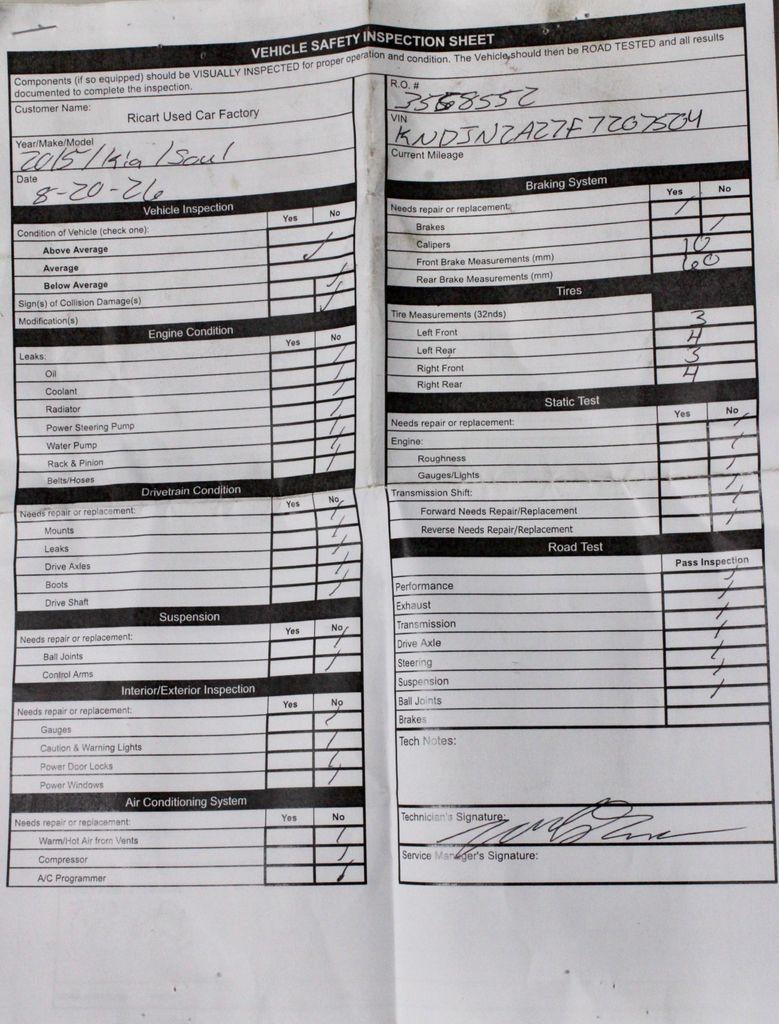 VEHICLE SAFETY INSPECTION SHEET
Components (if so equipped) should be VISUALLY INSPECTED for proper operation and condition. The Vehicle should then be ROAD TESTED and all results
documented to complete the inspection.
Customer Name:
Ricart Used Car Factory
Year/Make/Model
2015/Kia/Soul
Date
8-20-26
Vehicle Inspection
Yes No
Condition of Vehicle (check one):
Above Average
Average
Below Average
Sign(s) of Collision Damage(s)
Modification(s)
Engine Condition
Yes No
Leaks:
Oil
Coolant
Radiator
Power Steering Pump
Water Pump
Rack & Pinion
Belts/Hoses
Drivetrain Condition
Yes No
Needs repair or replacement:
Mounts
Leaks
Drive Axles
Boots
Drive Shaft
Suspension
Yes No
Needs repair or replacement:
Ball Joints
Control Arms
Interior/Exterior Inspection
Yes No
Needs repair or replacement:
Gauges
Caution & Warning Lights
Power Door Locks
Power Windows
Air Conditioning System
Yes No
Needs repair or replacement:
Warm/Hot Air from Vents
Compressor
A/C Programmer
R.O. #
VIN
KNDJN2A27F7207504
Current Mileage
Braking System
Yes No
Needs repair or replacement:
Brakes
Calipers
Front Brake Measurements (mm) 10
Rear Brake Measurements (mm) 60
Tires
Tire Measurements (32nds)
Left Front 3
Left Rear 4
Right Front 3
Right Rear 4
Static Test
Yes No
Needs repair or replacement:
Engine:
Roughness
Gauges/Lights
Transmission Shift:
Forward Needs Repair/Replacement
Reverse Needs Repair/Replacement
Road Test
Pass Inspection
Performance
Exhaust
Transmission
Drive Axle
Steering
Suspension
Ball Joints
Brakes
Tech Notes:
Technician's Signature:
Service Manager's Signature: